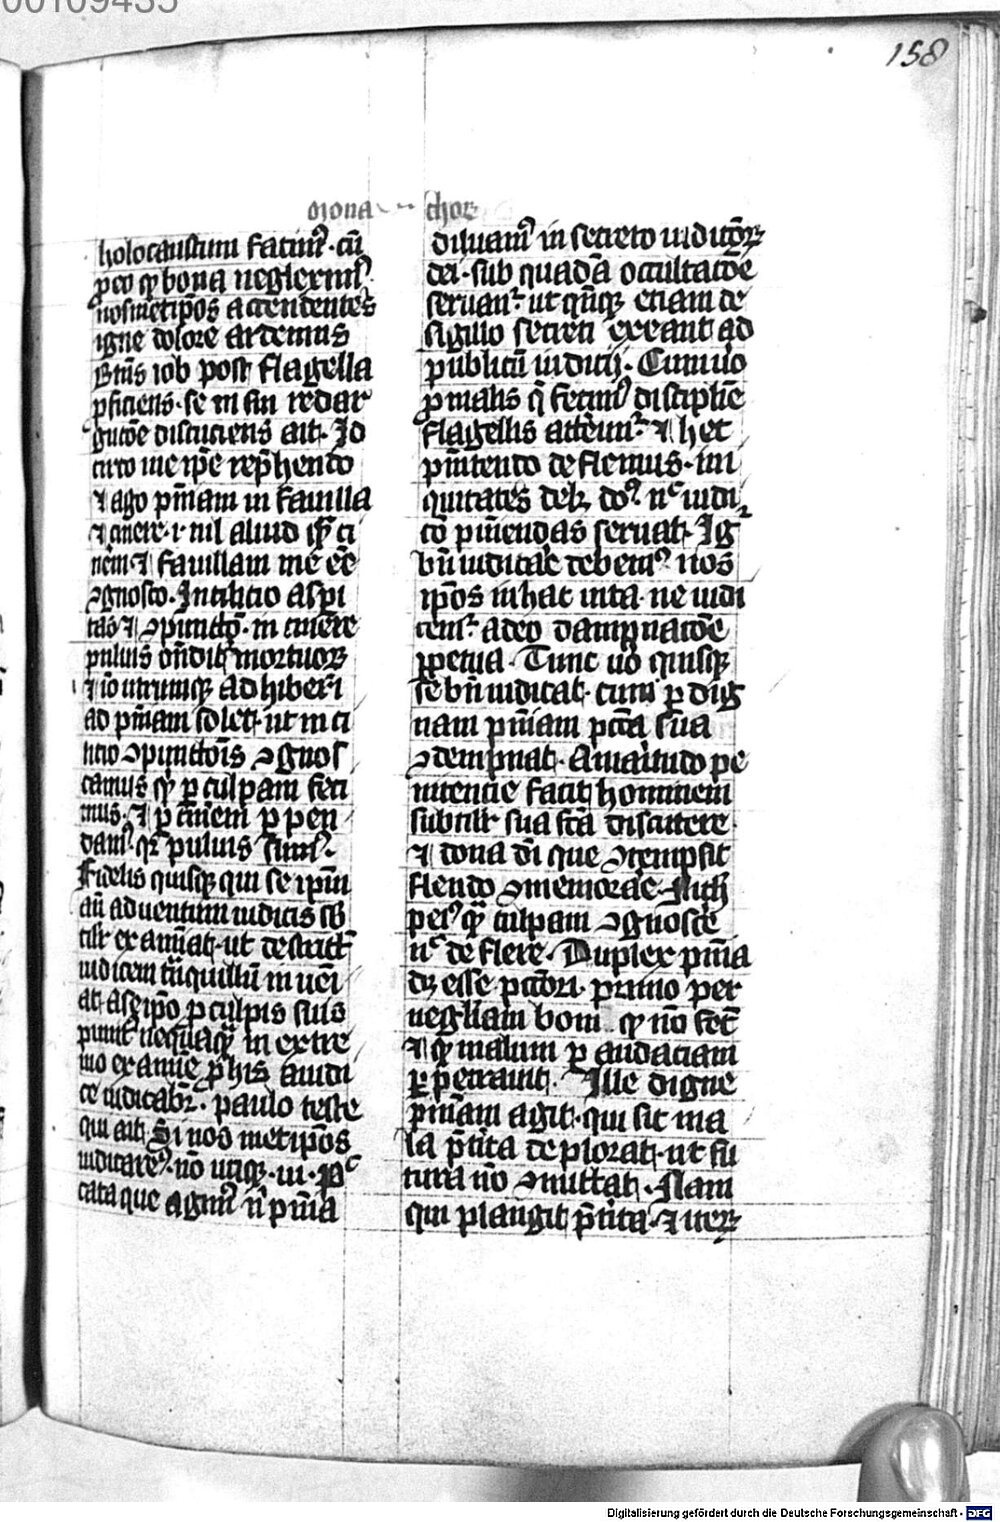 00109435
158
mona chor
holocaustum facim⁹. cū
p eo qꝫ bona neglexim⁹.
nosmetip̄os attendentes
igne dolore ardemus
Bt̄us iob post flagella
ꝓficiens. se in sui redar
gucōe discuciens ait. Id
circo me ip̄e rep̄hendo
⁊ ago pn̄iam in fauilla
⁊ cinere. nil aliud ci
nem ⁊ fauillam me eē
ꝯgnosco. In cilicio aspi
tas ⁊ ꝯpunctō. in cinere
puluis on̄dit̄ mortuoꝝ
⁊ iō utrumqꝫ adhiberi
ad pn̄iam solet. ut in ci
licio ꝯpunctōis ꝯgnos
camus qꝫ ꝑ culpam feci
mus. ⁊ ꝑ cinerem ꝑpen
dam⁹. qꝛ puluis sum⁹.
Fidelis quisqꝫ qui se ip̄m
an̄ aduentum iudicis
examinat. ut
iudicem tn̄quillum inueni
at. a seip̄o ꝑ culpis suis
punit̄ nequaqꝫ in extre
mo examine ꝓ his
ce iudicabr̄. paulo teste
qui ait. Si nos metip̄os
iudicarem⁹. nō utiqꝫ. iu. Pᶜ
cata que agim⁹ pn̄ia
diluam⁹ in secreto iudicōꝝ
dei. sub quadā occultacōe
seruant̄. ut qn̄qꝫ eciam de
sigillo secreti exeant ad
publicū iudicij. Cum uo
ꝓ malis q̄ fecim⁹ discipline
flagellis atterim̄. ⁊ hec
pn̄itendo deflemus. ini
quitates delꝫ do⁹. nᶜ iudi
cō puniendas seruat. Ig
bn̄ iudicare debem⁹ nos
ip̄os in hac uita. ne iudi
cem̄. a deo dampnacōe
ꝑpetua. Tunc uō quisqꝫ
se bn̄ iudicat. cum ꝑ dig
nam pn̄iam pctā sua
ꝯdempnat. Amaritudo pe
nitencie facit hominem
subtilr̄ sua fcā discutere.
⁊ dona dn̄i que ꝯtempsit
flendo ꝯmemorare. Nich
pei⁹ qꝫ culpam ꝯgnosce
nᶜ deflere. Duplex pn̄ia
dꝫ esse pctōri. primo per
negligam boni qꝫ nō fecit
⁊ qꝫ malum ꝑ audaciam
ꝑpetrauit. Ille digne
pn̄iam agit. qui sic ma
la p̄t̄ita deplorat. ut fu
tura nō ꝯmittat. Nam
qui plangit p̄t̄ita. ⁊ iteꝝ
Digitalisierung gefördert durch die Deutsche Forschungsgemeinschaft - DFG